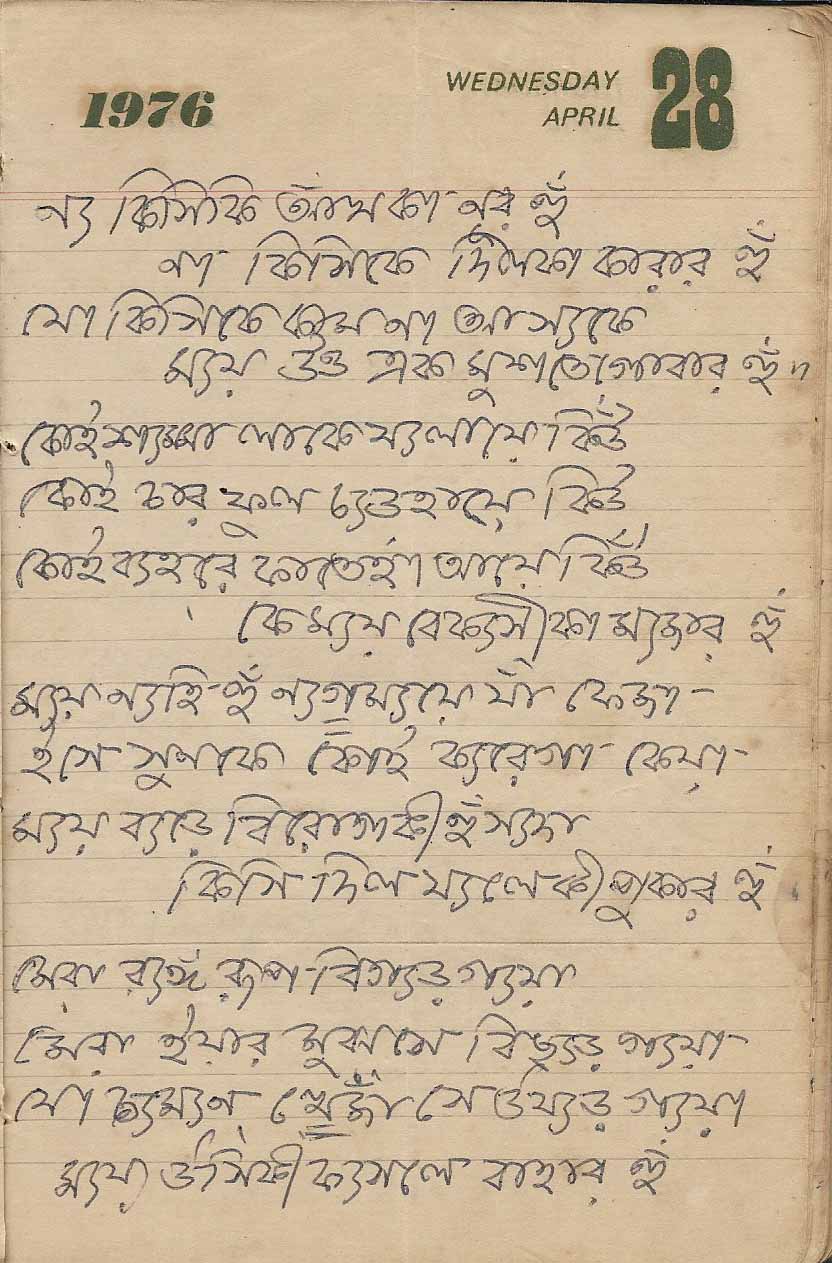 1976
WEDNESDAY
APRIL
28
ন্য কিসিকি আঁখ কা নুর হুঁ
না কিসিকে দিলকা কারার হুঁ
যো কিসিকে কাম না আ স্যকে
ম্যয় উও এক মুশতে গোবার হুঁ॥
কোই শ্যম্মা লাকে য্যলায়ে কিঁউ
কোই চার ফুল চ্যড়হায়ে কিঁউ
কোই ব্যহরে ফাতেহাঁ আয়ে কিঁউ
কে ম্যয় বেক্যসী কা ম্যজার হুঁ
ম্যয় ন্যহি হুঁ ন্যগ্মায়ে যাঁ ফেজা
ইসে সুনকে কোই ক্যরেগা কেয়া
ম্যয় ব্যড়ে বিরোগকী হুঁ স্যদা
কিসি দিল য্যলে কী পুকার হুঁ
মেরা র‍্যঙ্গ রূপ বিগ্যড় গ্যয়া
মেরা ইয়ার মুঝসে বিছ্যড় গ্যয়া
যো চ্যম্যন খেজাঁ সে উয্যড় গ্যয়া
ম্যয় উসিকী ফ্যসলে বাহার হুঁ